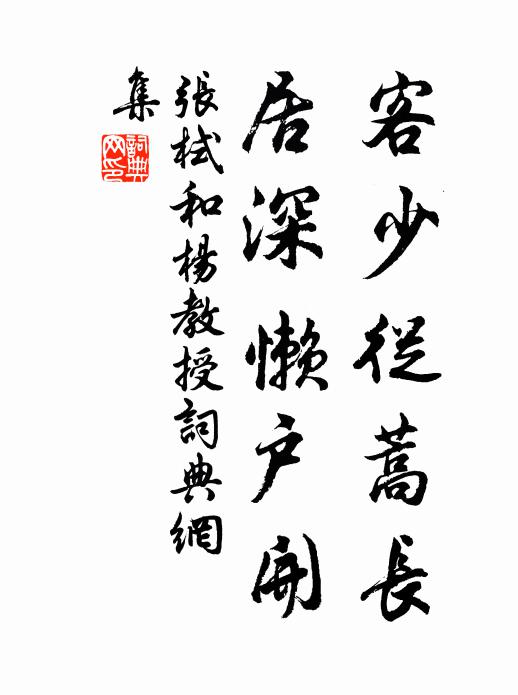 客少從蒿長
居深懶户開
張栻和楊教授詞典網
集
詞典
网印